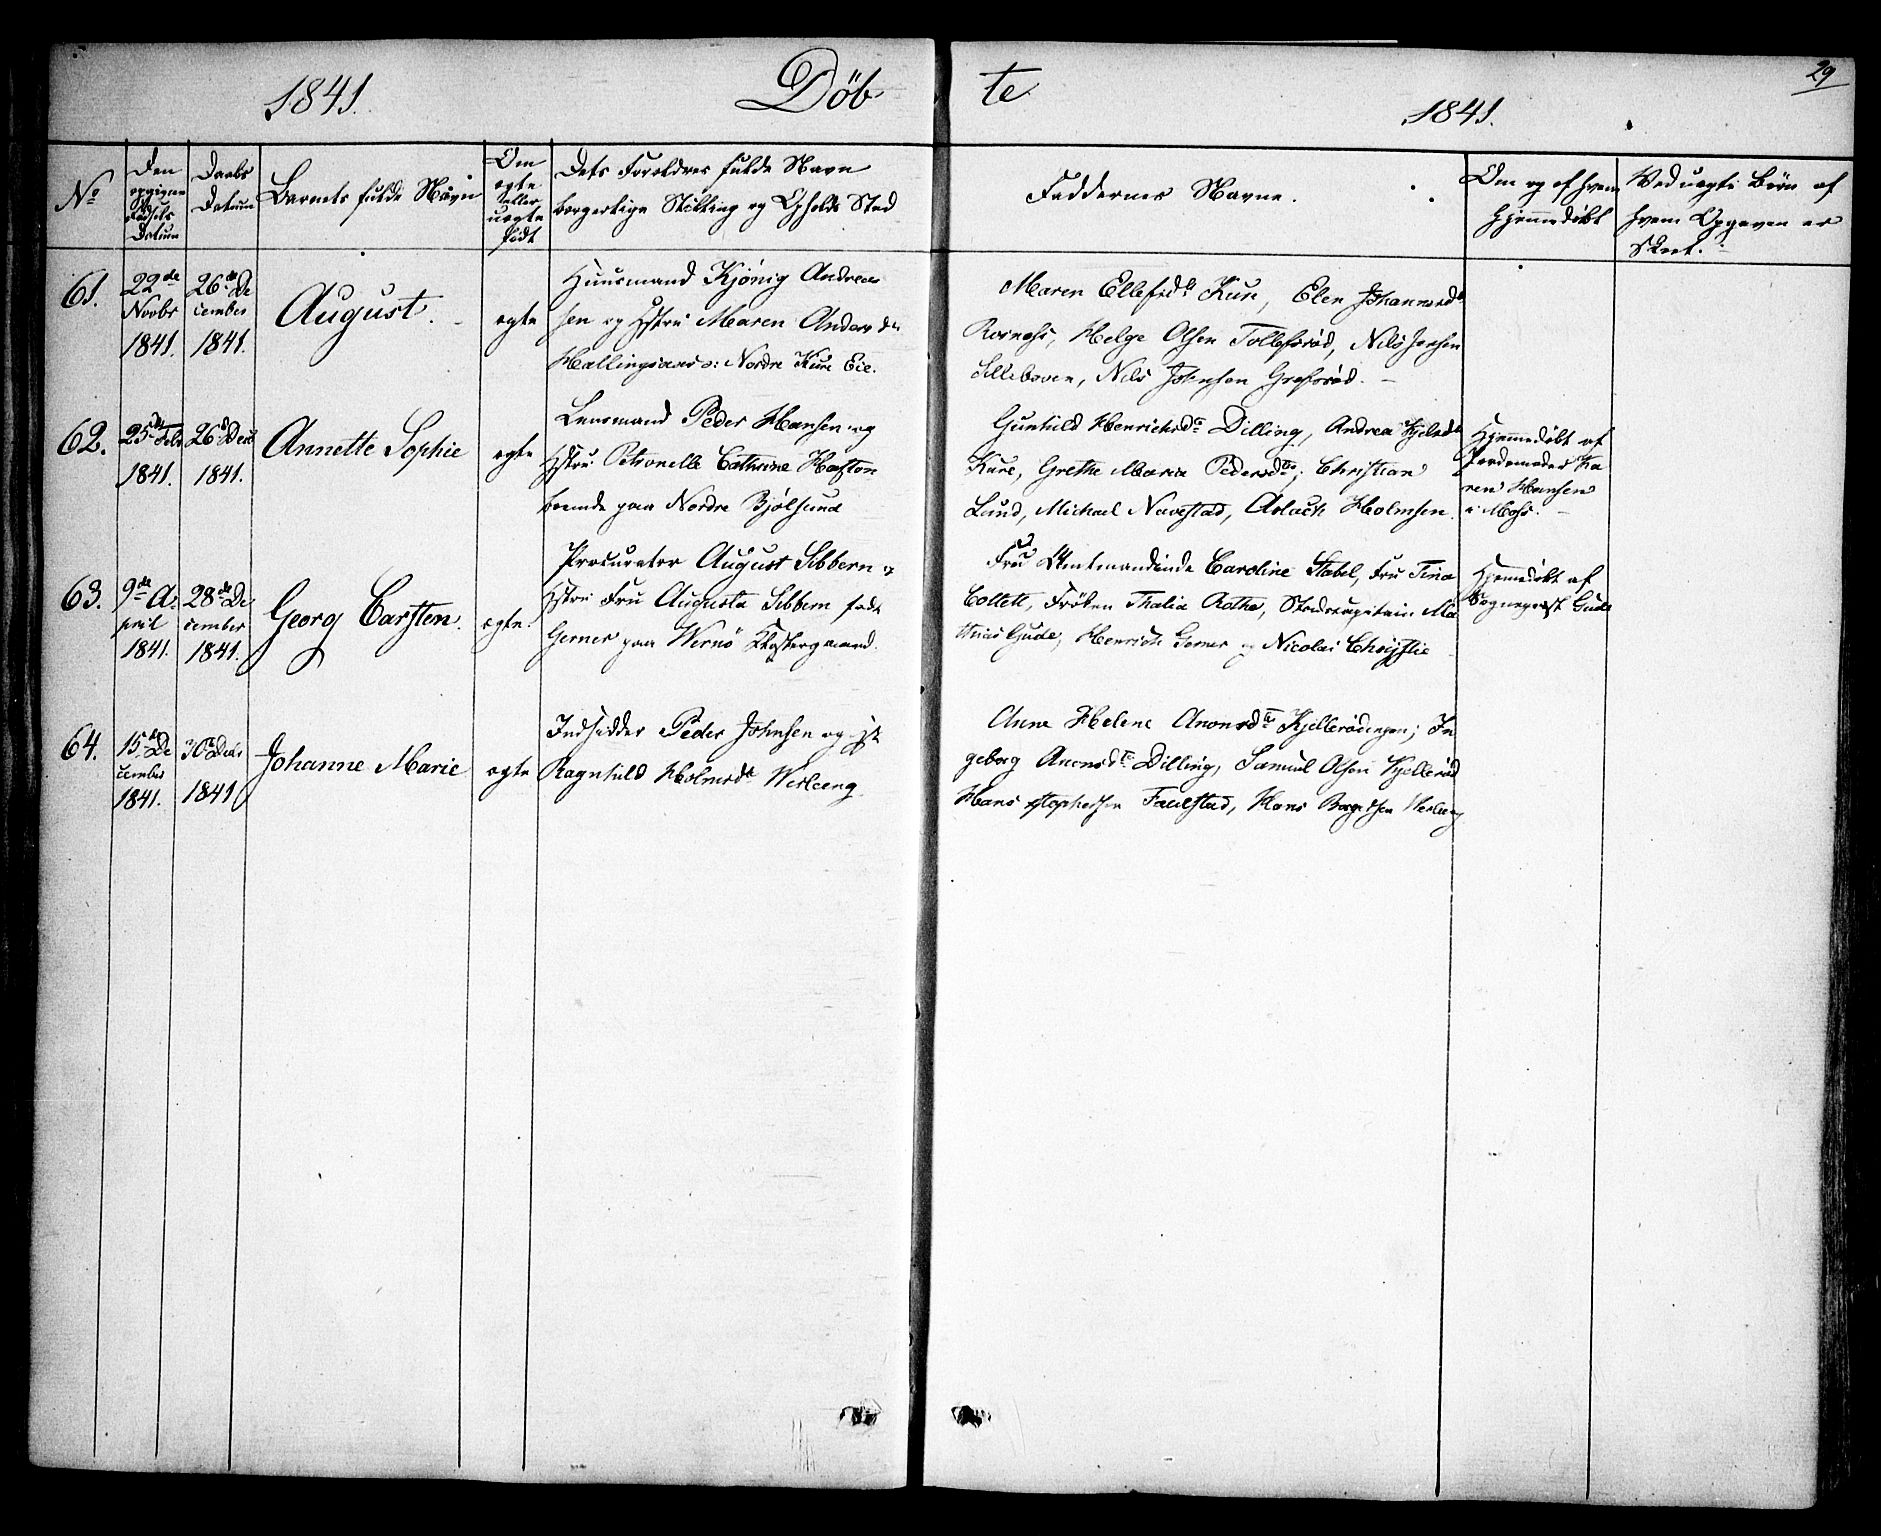 29
1841. Döb te 1841.
No
Den opgivne Fødsels Datum
Daabs Datum
Barnets fulde Navn
Om ægte eller uægte født
Dets Forældres fulde Navn
borgerlige Stilling og Opholds Sted
Faddernes Navne.
Om og af hvem
hjemmedöbt
Ved uægte Börn af
hvem Opgaven er
Skeet.
61.
22de
Novbr
1841.
26de De
cember
1841.
August.
ægte
Huusmand Kjönig Andrea
sen og Hstru Maren Anders dtr
Hallingsaas o: Nordre Kure Eie.
Maren Ellefsd. Kure, Elen Johannesd.
Rosnæss, Helge Olsen Tollefsröd, Nils Jensen
Sillebaven, Nils Johnsen Grefsröd.
62.
25de Feb
1841.
26de Decb
1841.
Annette Sophie
ægte
Lensmand Peder Hansen og
Hstru Petronelle Cathrine Hafton
boende paa Nordre Bjölsund
Gunhild Henrichsd. Dilling, Andrea Kjelsd.
Kure, Grethe Maria Pedersd.; Christian
Lund, Michael Navestad, Aslach Holmsen.
Hjemmedöbt af
Jordemoder Ka
ren Hansen
i Moss.
63.
9de A
pril
1841.
28de De
cember
1841.
Georg Carsten.
ægte.
Procurator August Sibbern o
Hstru Fru Augusta Sibbern född
Gerner paa Wernö Klostergaard.
Fru Amtmandinde Caroline Stabel, Fru Tina
Collett, Fröken Thalia Rothe, Stadscapitain Ma
thias Gude, Henrich Gerner og Nicolai Christie
Hjemmedöbt af
Sognepræst Gude
64.
15de De
cember
1841.
30te Decbr
1841
Johanne Marie
ægte
Indsidder Peder Johnsen og H
Ragnhild Holmsd. Werleeng
Anne Helene Amonsd. Kjellerödengen; In
geborg Amonsd. Dilling, Samuel Olsen Kjelleröd
Hans Stophersen Faulstad, Hans Borgersen Werleeng